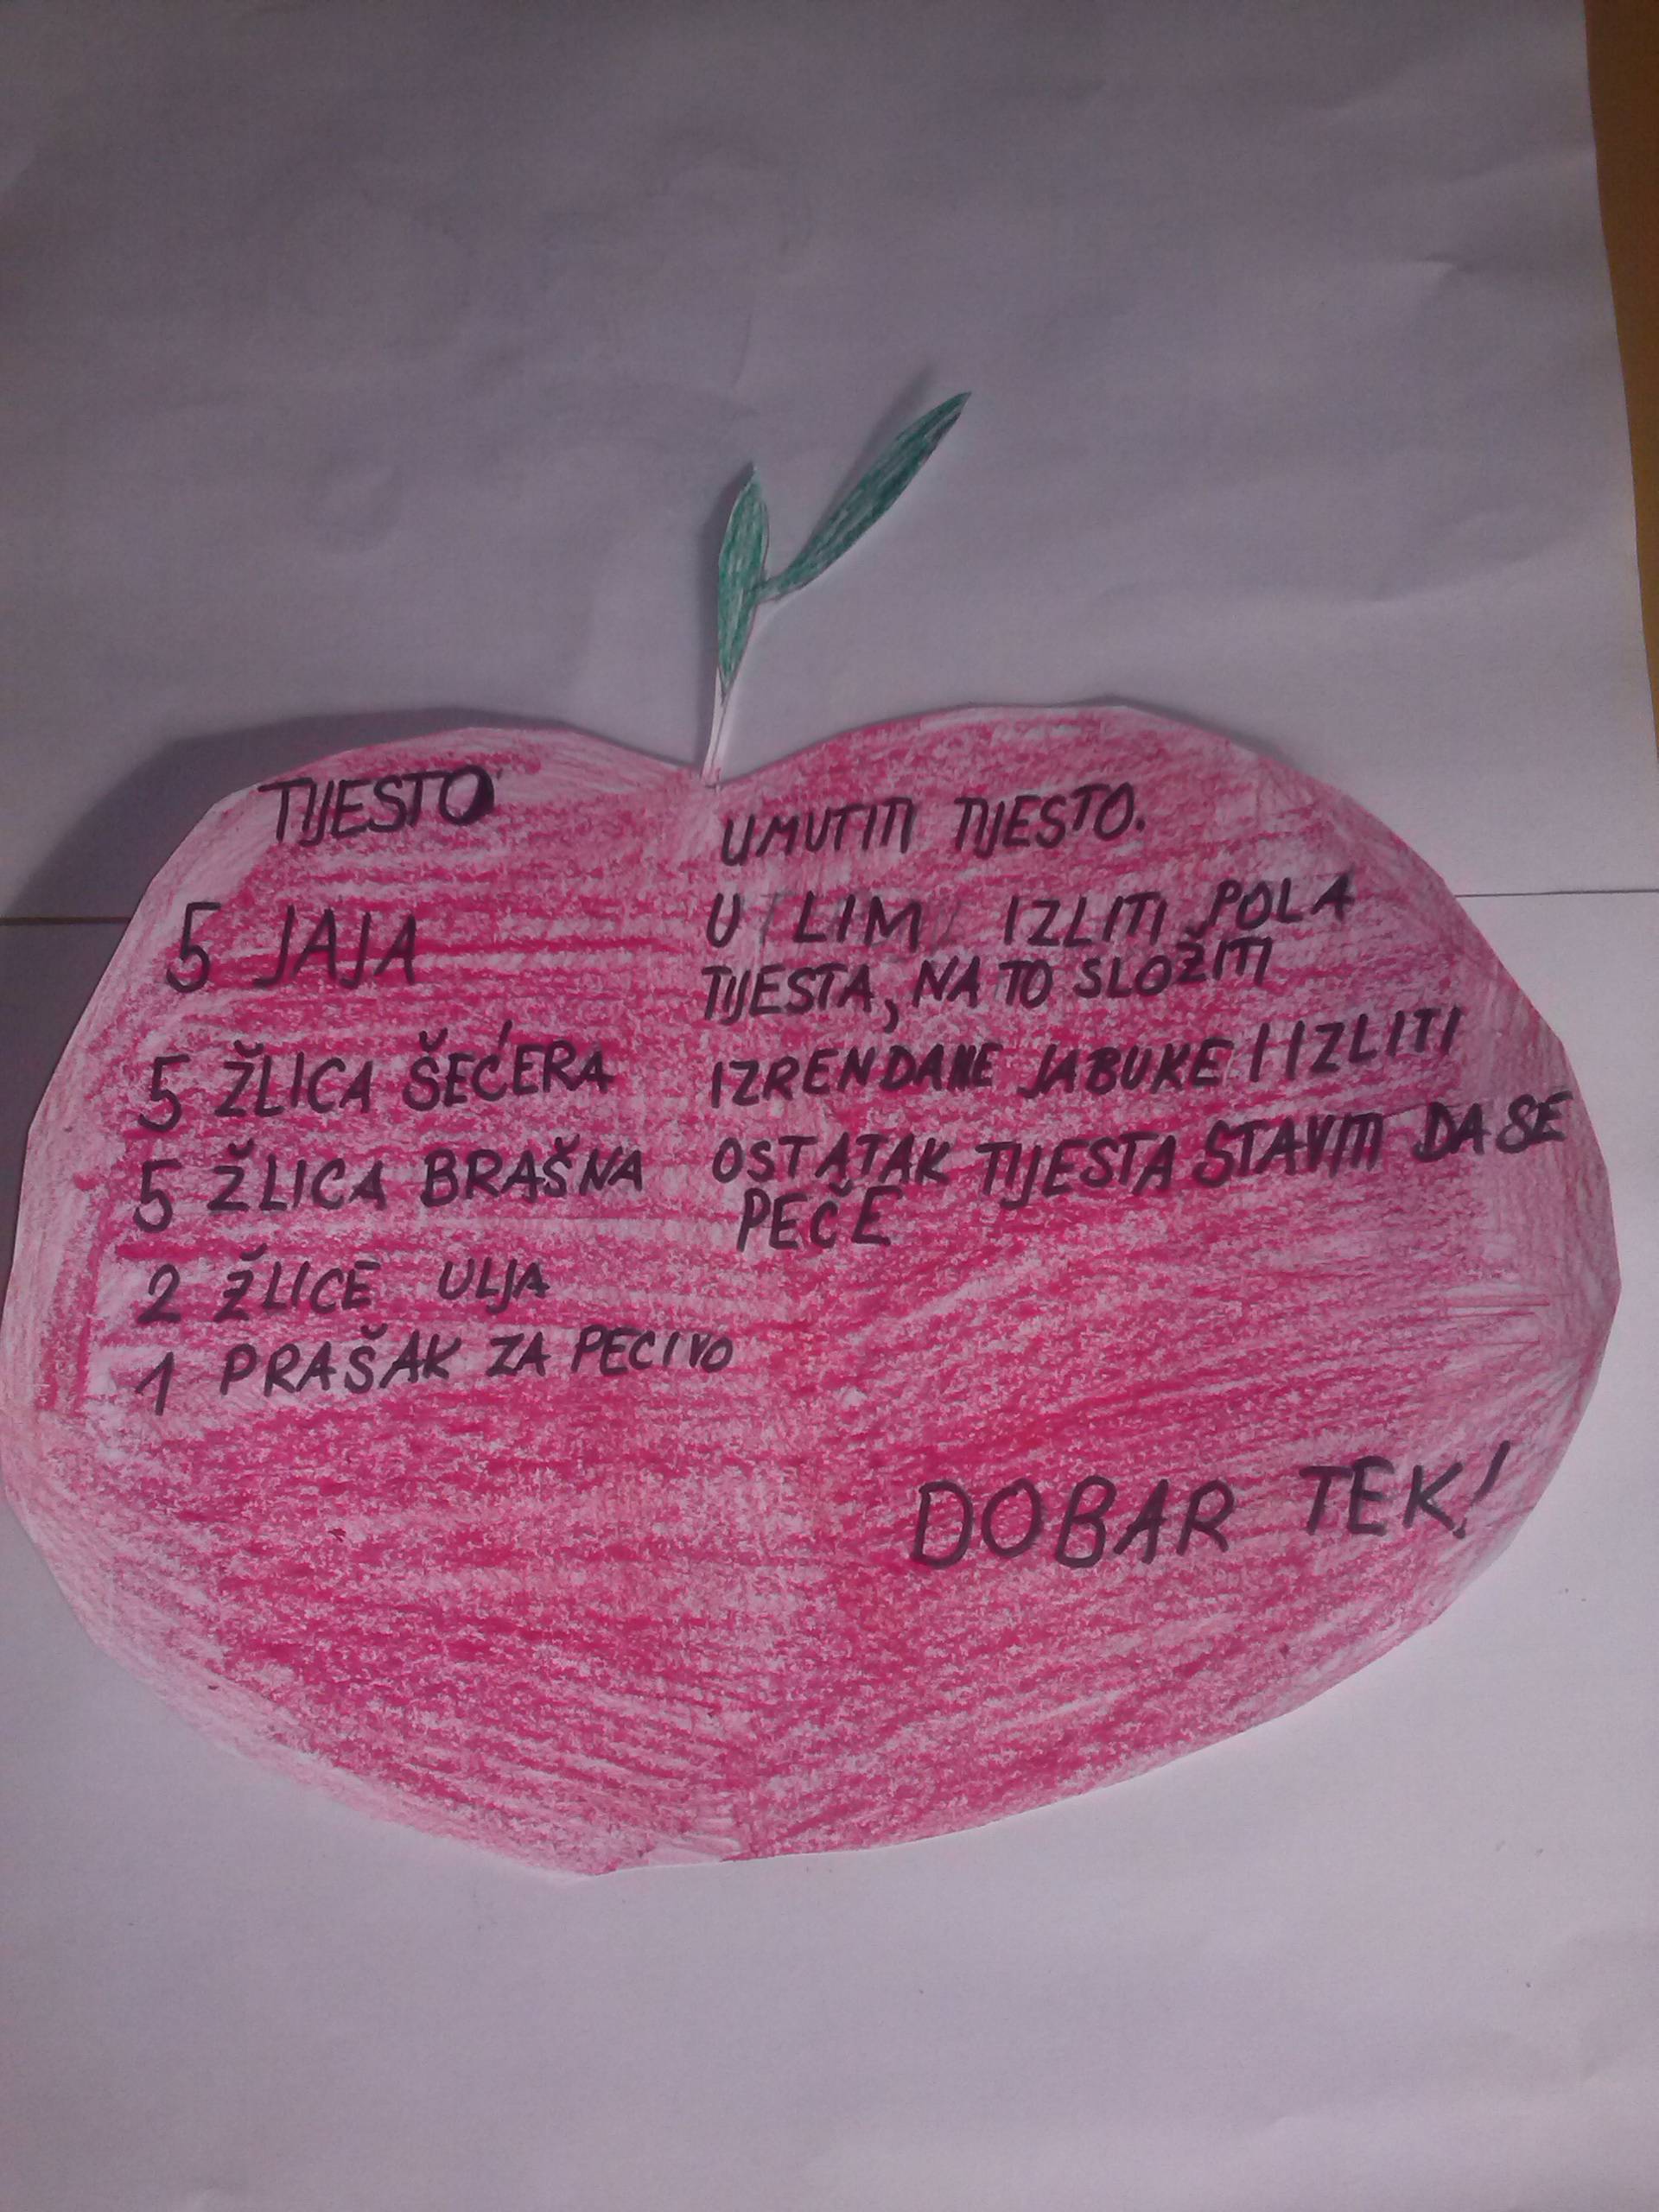 TIJESTO
5 JAJA
5 ŽLICA ŠEĆERA
5 ŽLICA BRAŠNA
2 ŽLICE ULJA
1 PRAŠAK ZA PECIVO
UMUTITI TIJESTO.
U LIM IZLITI POLA
TIJESTA, NA TO SLOŽITI
IZRENDANE JABUKE I IZLITI
OSTATAK TIJESTA STAVITI DA SE
PEČE
DOBAR TEK!